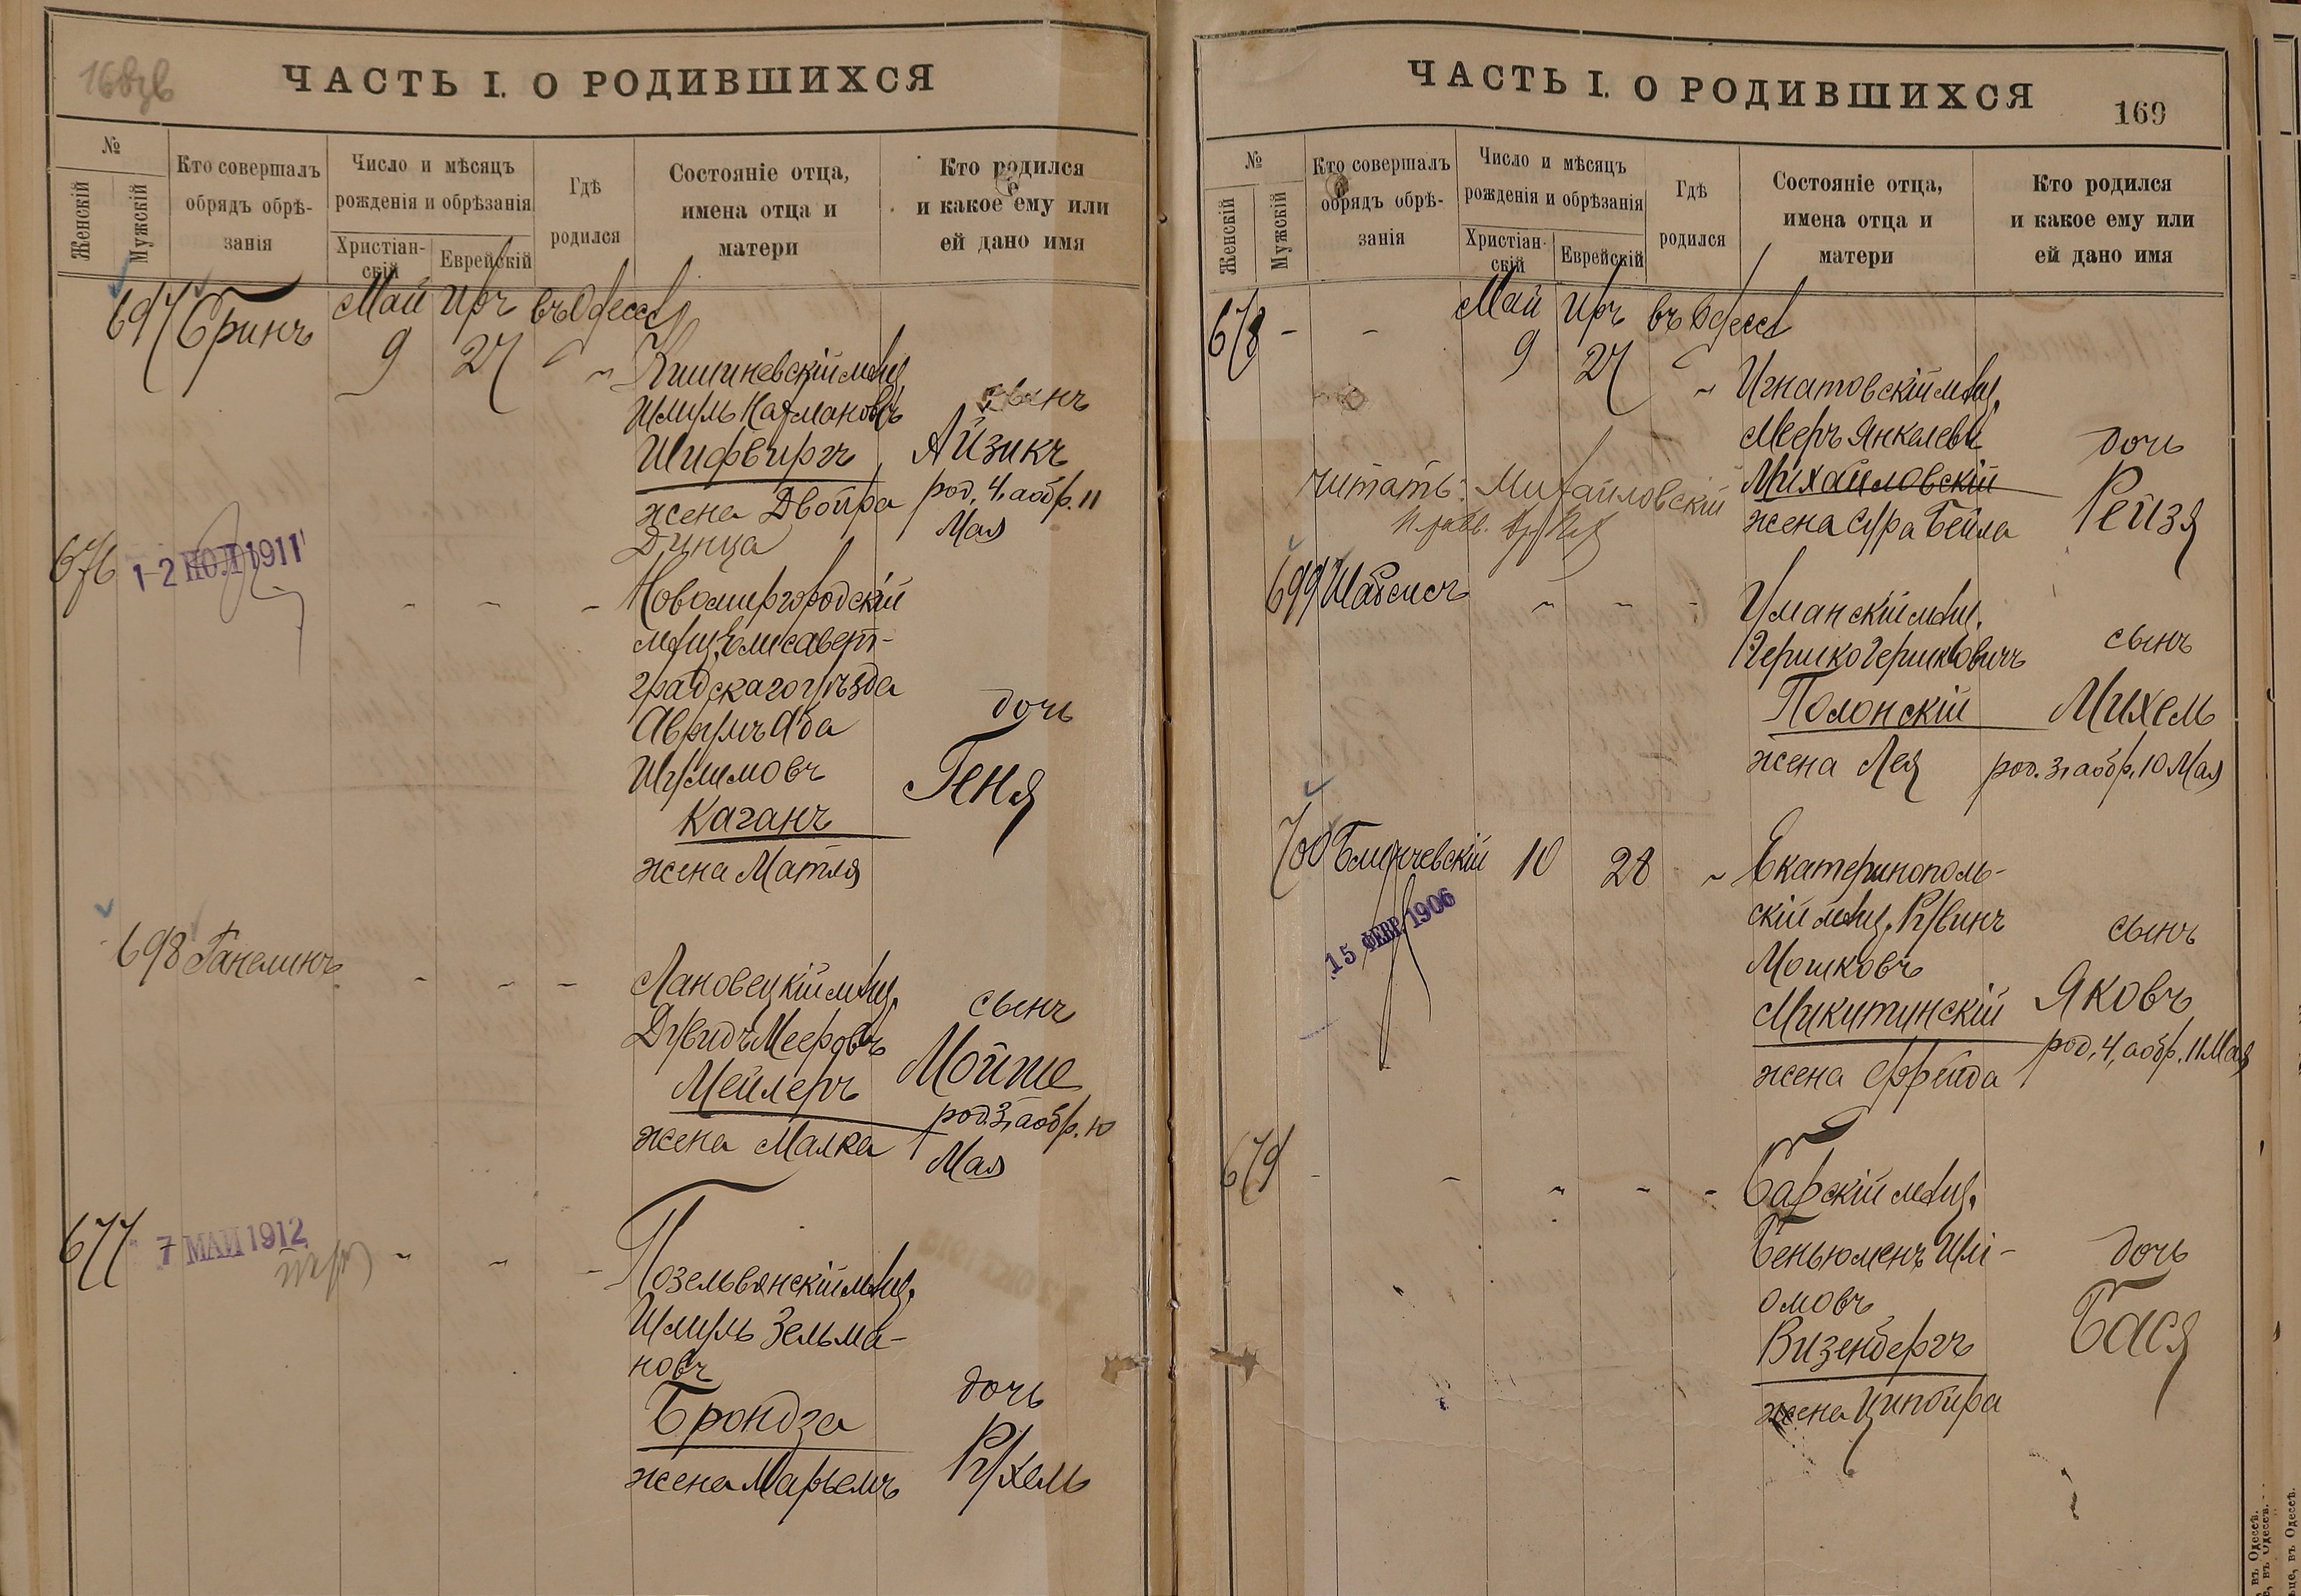 168об
ЧАСТЬ I. О РОДИВШИХСЯ
№
Женскій
Мужскій
Кто совершалъ
обрядъ обрѣ-
занія
Число и мѣсяцъ
рожденія и обрѣзанія
Христіан-
скій
Еврейскій
Гдѣ
родился
Состояніе отца,
имена отца и
матери
Кто родился
и какое ему или
ей дано имя
697 Гринъ Май Иръ въ Одессѣ
9 27
Кишиневскій мѣщ.
Шмуль Нахмановъ
Шифвиргъ
жена Двойра
Динца
сынъ
Айзикъ
род. 4, а обр. 11
Мая
676
12 ІЮЛ 1911
Новомиргородскій
мѣщ. Елисавет-
градскаго уѣзда
Аврумъ Аба
Шулимовъ
Каганъ
жена Матля
дочь
Геня
698 Ганелинъ
Лановецкій мѣщ.
Дувидъ Мееровъ
Мейлеръ
жена Малка
сынъ
Мойше
род. 3, а обр. 10
Мая
677
7 МАЙ 1912
Позельвянскій мѣщ.
Шмуль Зельма-
новъ
Брондза
жена Марьемъ
дочь
Рухель
ЧАСТЬ I. О РОДИВШИХСЯ
169
№
Женскій
Мужскій
Кто совершалъ
обрядъ обрѣ-
занія
Число и мѣсяцъ
рожденія и обрѣзанія
Христіан-
скій
Еврейскій
Гдѣ
родился
Состояніе отца,
имена отца и
матери
Кто родился
и какое ему или
ей дано имя
678 - - Май Иръ въ Одессѣ
9 27
Игнатовскій мѣщ.
Мееръ Янкелевъ
Михайловскій
жена Сура Бейла
дочь
Рейзя
читать: Михайловскій
699 Шахсисъ
Уманскій мѣщ.
Гершко Гершковичъ
Полонскій
жена Лея
сынъ
Михель
род. 3, а обр. 10 Мая
700 10 28
15 ФЕВР. 1906
Екатеринополь-
скій мѣщ. Рувинъ
Мошковъ
Микитинскій
жена Фрейда
сынъ
Яковъ
род. 4, а обр. 11 Мая
679
Барскій мѣщ.
Беньюменъ Шлі-
омовъ
Визенбергъ
жена Ципойра
дочь
Бася
въ Одессѣ.
въ Одессѣ.
въ Одессѣ.